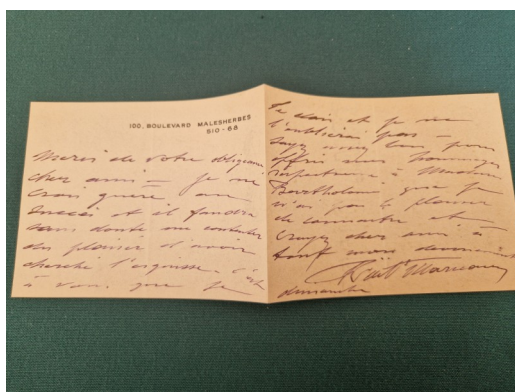 100, BOULEVARD MALESHERBES
610-68
Merci de votre obligeance
cher ami — je ne
crois guère au
succès et il faudra
sans doute me contenter
du plaisir d'avoir
cherché l'esquisse. C'est
à vous que je
le dois et je ne
l'oublierai pas —
soyez assez bon pour
offrir mes hommages
respectueux à Madame
Bartholoni que je
n'ai pas le plaisir
de connaître et
croyez cher ami à
tout mon dévouement
dimanche